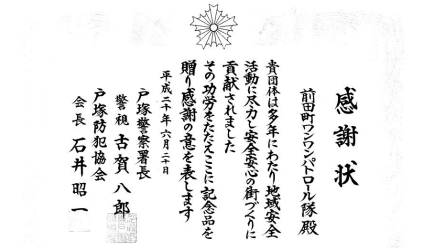 感謝状
前田町ワンワンパトロール隊殿
貴団体は多年にわたり地域安全
活動に尽力し安全安心の街づくりに
貢献されました
その功労をたたえここに記念品を
贈り感謝の意を表します
平成二十年六月二十日
戸塚警察署長
警視 古賀八郎
戸塚防犯協会
会長 石井昭一